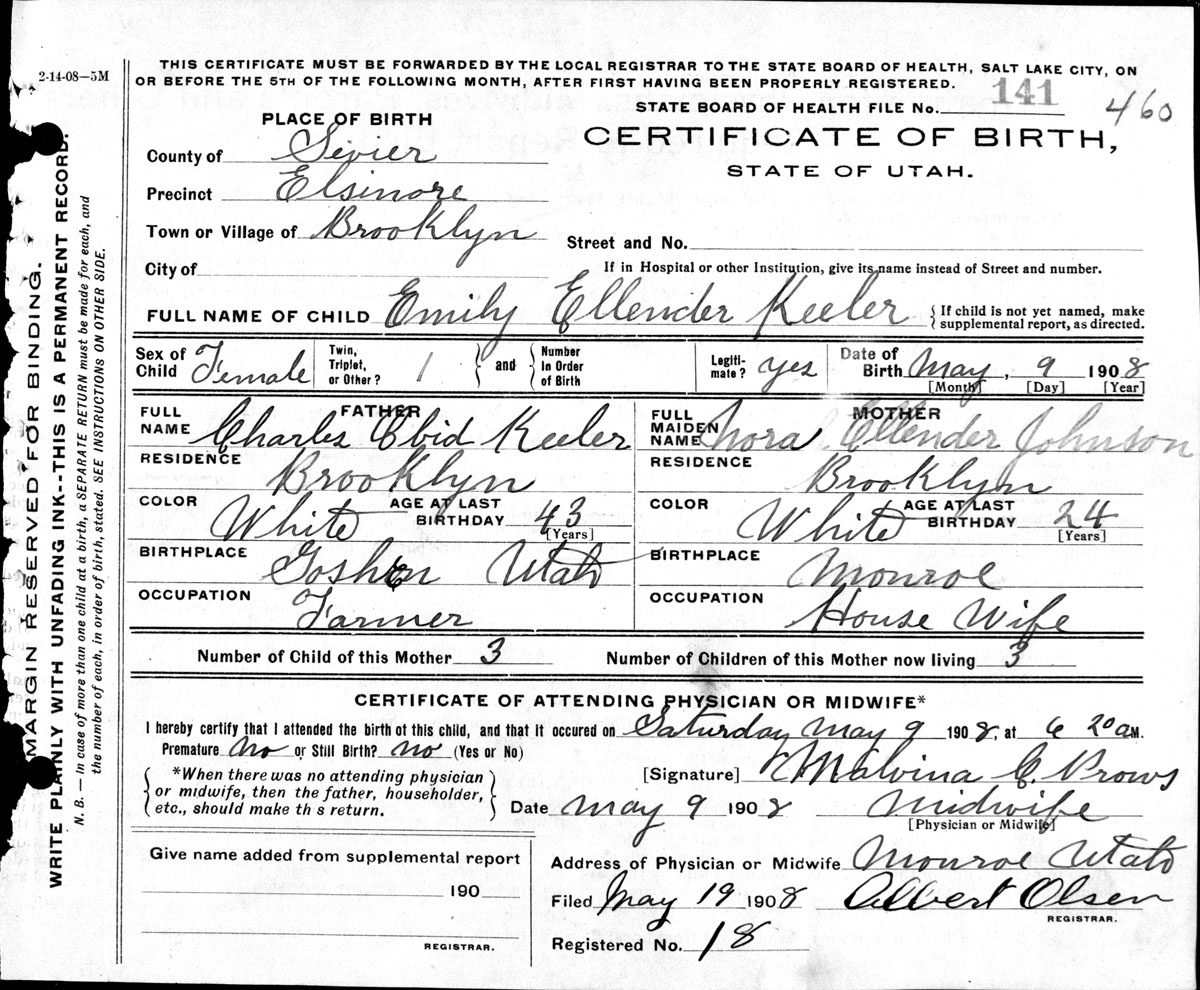 2-14-08—5M
THIS CERTIFICATE MUST BE FORWARDED BY THE LOCAL REGISTRAR TO THE STATE BOARD OF HEALTH, SALT LAKE CITY, ON
OR BEFORE THE 5TH OF THE FOLLOWING MONTH, AFTER FIRST HAVING BEEN PROPERLY REGISTERED.
STATE BOARD OF HEALTH FILE No. 141 460
CERTIFICATE OF BIRTH,
STATE OF UTAH.
PLACE OF BIRTH
County of Sevier
Precinct Elsinore
Town or Village of Brooklyn
Street and No.
City of
If in Hospital or other Institution, give its name instead of Street and number.
FULL NAME OF CHILD Emily Ellender Keeler { If child is not yet named, make supplemental report, as directed.
Sex of Child Female Twin, Triplet, or Other? 1 } and { Number in Order of Birth Legiti-mate? yes Date of Birth May, 9 1908
[Month] [Day] [Year]
FATHER
FULL NAME Charles Ebid Keeler
RESIDENCE Brooklyn
COLOR White AGE AT LAST BIRTHDAY 43 [Years]
BIRTHPLACE Goshen Utah
OCCUPATION Farmer
MOTHER
FULL MAIDEN NAME Nora Ellender Johnson
RESIDENCE Brooklyn
COLOR White AGE AT LAST BIRTHDAY 24 [Years]
BIRTHPLACE Monroe
OCCUPATION House Wife
Number of Child of this Mother 3 Number of Children of this Mother now living 3
CERTIFICATE OF ATTENDING PHYSICIAN OR MIDWIFE*
I hereby certify that I attended the birth of this child, and that it occured on Saturday May 9 1908, at 6 20 a M.
Premature No or Still Birth? no (Yes or No)
{ *When there was no attending physician
or midwife, then the father, householder,
etc., should make th s return. }
[Signature] Malvina C. Prows
Date May 9 1908 Midwife
[Physician or Midwife]
Give name added from supplemental report
190
REGISTRAR.
Address of Physician or Midwife Monroe Utah
Filed May 19 1908 Albert Olsen
REGISTRAR.
Registered No. 18
MARGIN RESERVED FOR BINDING.
WRITE PLAINLY WITH UNFADING INK--THIS IS A PERMANENT RECORD.
N. B. — In case of more than one child at a birth, a SEPARATE RETURN must be made for each, and
the number of each, in order of birth, stated. SEE INSTRUCTIONS ON OTHER SIDE.